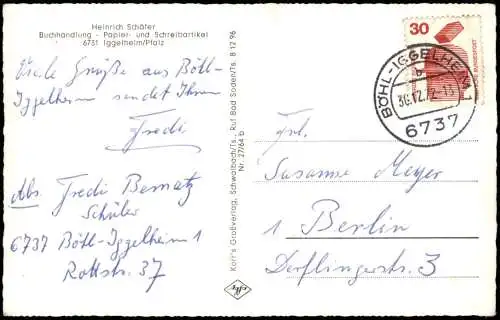 Heinrich Schäfer
Buchhandlung - Papier- und Schreibartikel
6731 Iggelheim/Pfalz
Viele Grüße aus Böhl-
Iggelheim sendet Ihnen
Fredi
Abs. Fredi Bernatz
Schüler
6737 Böhl-Iggelheim 1
Rottstr. 37
Korr's Großverlag, Schwalbach/Ts. - Ruf Bad Soden/Ts. 8 12 96
Nr. 27/64 b
30
BÖHL-IGGELHEIM 1
b
30.12.72-11
6737
Frl.
Susanne Meyer
1 Berlin
Derflingerstr. 3